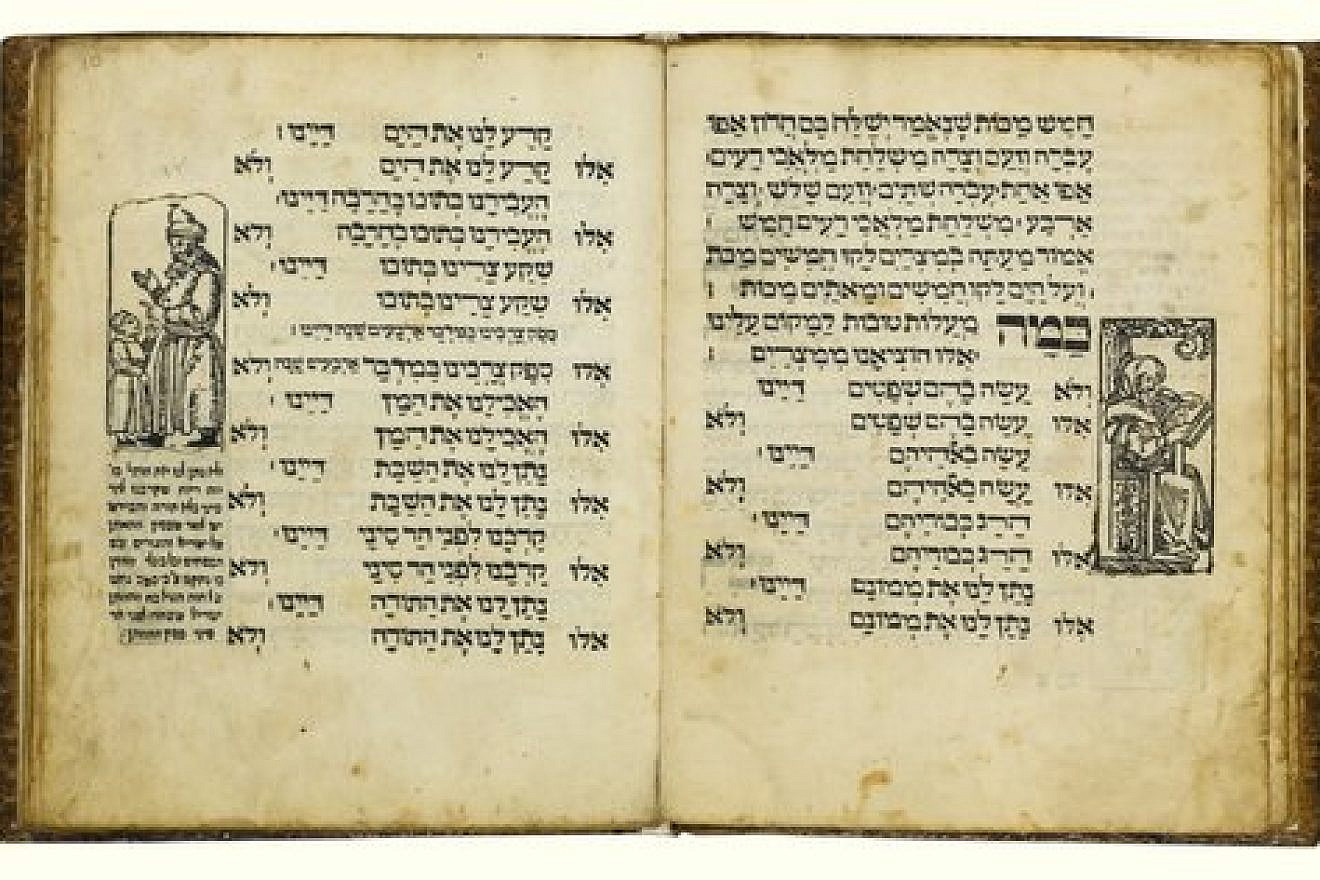 חמיש מכות שנאמר ישלח בם חרון אפו
עברה וזעם וצרה משלחת מלאכי רעים׃
אפו אחת עברה שתים׃ וזעם שלש׃ וצרה
ארבע׃ משלחת מלאכי רעים חמש׃
אמור מעתה במצרים לקו חמשים מכות
ועל הים לקו חמשים ומאתים מכות׃
כמה מעלות טובות למקום עלינו
אלו הוציאנו ממצרים׃
ולא עשה בהם שפטים דיינו
אלו עשה בהם שפטים ולא
עשה באלהיהם דיינו׃
אלו עשה באלהיהם ולא
הרג בכוריהם דיינו׃
אלו הרג בכוריהם ולא
נתן לנו את ממונם דיינו׃
אלו נתן לנו את ממונם ולא
קרע לנו את הים דיינו׃
אלו קרע לנו את הים ולא
העבירנו בתוכו בחרבה דיינו׃
אלו העבירנו בתוכו בחרבה ולא
שקע צרינו בתוכו דיינו׃
אלו שקע צרינו בתוכו ולא
ספק צרכינו במדבר ארבעים שנה דיינו׃
אלו ספק צרכינו במדבר ארבעים שנה ולא
האכילנו את המן דיינו׃
אלו האכילנו את המן ולא
נתן לנו את השבת דיינו׃
אלו נתן לנו את השבת ולא
קרבנו לפני הר סיני דיינו׃
אלו קרבנו לפני הר סיני ולא
נתן לנו את התורה דיינו׃
אלו נתן לנו את התורה ולא